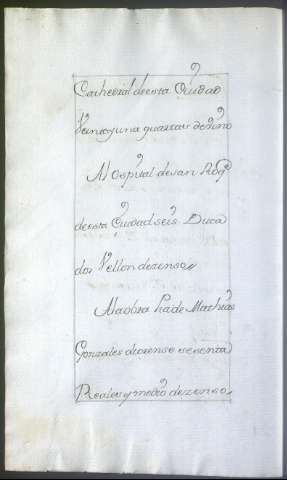 Cathedral de esta Ciudad
Veinte y una quartas de vino
Al Ospital de san Roq
de esta Ciudad seis Duca
dos Vellon de zenso
A la obra Pia de Mathias
Gonzales de orense sesenta
Reales y medio de zenso